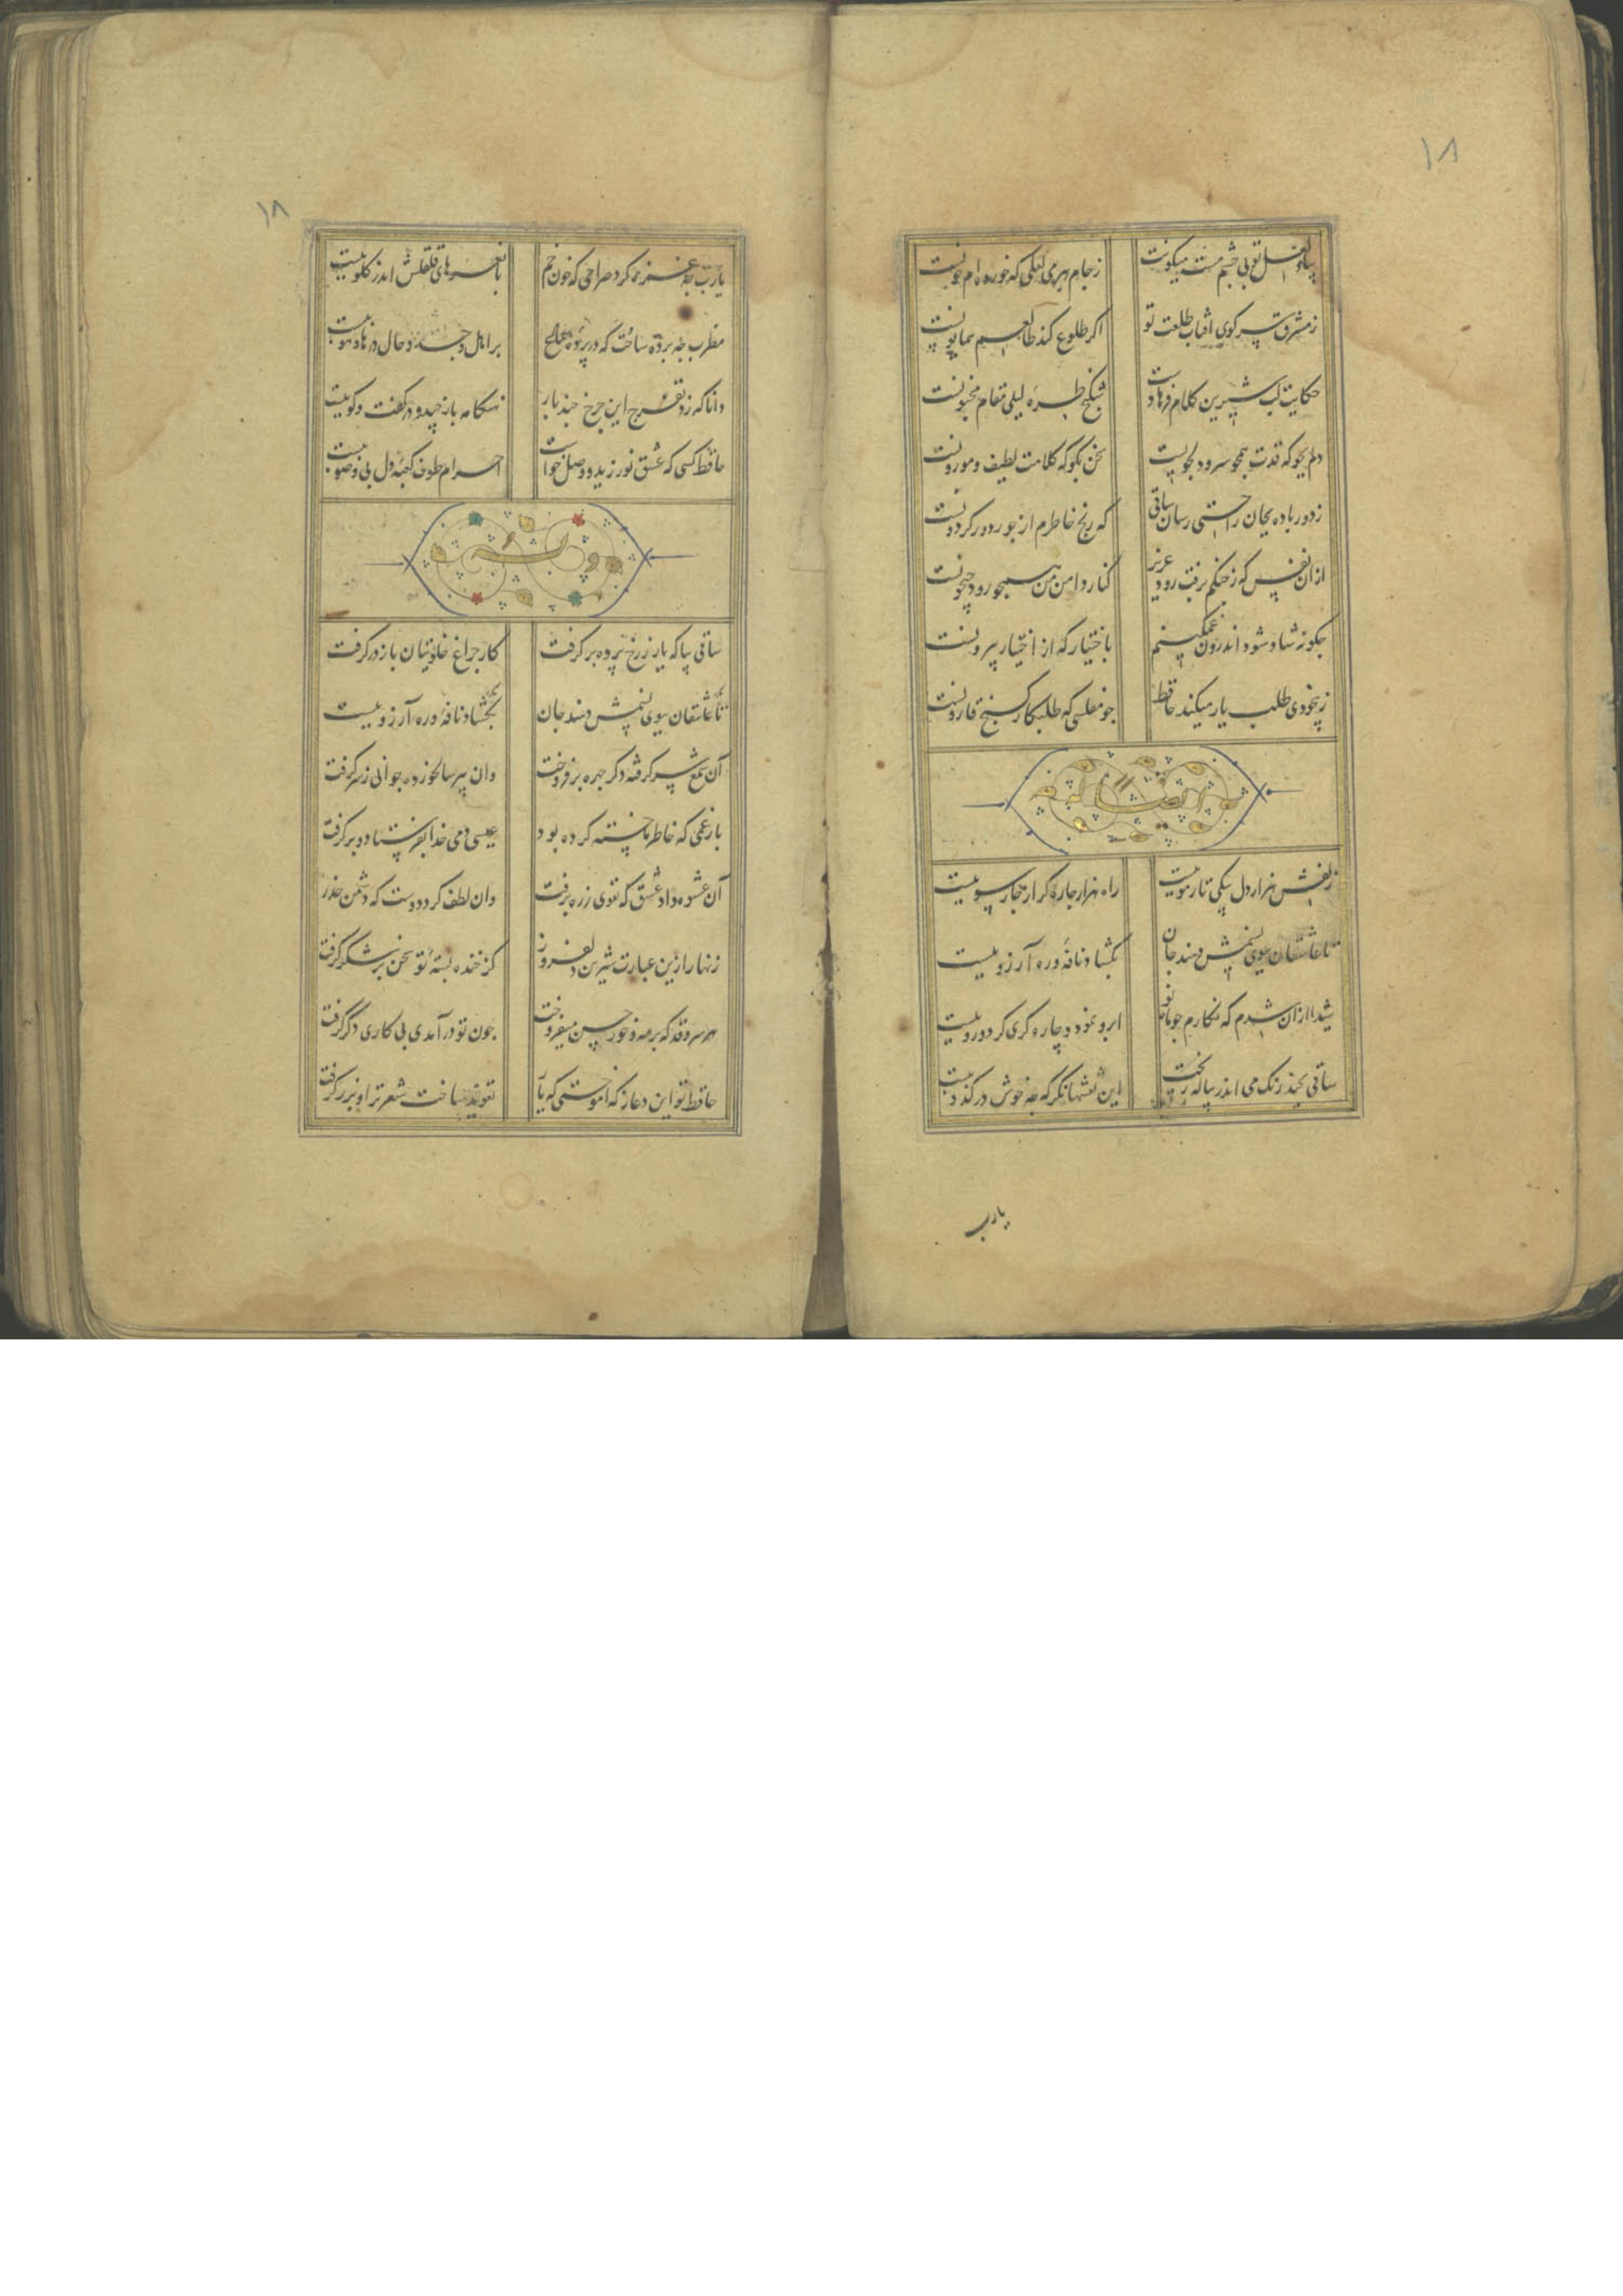 ۱۸
بیاد لعل تو بی چشم مست میکونت
ز جام غم می لعلی که خوردام خونست
ز مشرق سر کوی افتاب طلعت تو
اکر طلوع کند طالعم همایونست
حکایت لب شیرین کلام فرهادست
شکنج طره لیلی مقام مجنونست
دلم بجو که قدت همچو سرو دلجویست
سخن بکو که کلامت لطیف و موزونست
ز دور باده بجان راحتی رسان ساقی
که رنج خاطرم از جور دور کردونست
از ان نفس که ز چنکم برفت رود عزیز
کنار دامن من همچو رود جیحونست
چکونه شاد شود اندرون غمکینم
باختیار که از اختیار بیرونست
ز بیخودی طلب یار میکند حافظ
چو مفلسی که طلبکار کنج قارونست
و ایضا له
زلفش هزار دل بیکی تار مو ببست
راه هزار چاره کر از چار سو ببست
تا عاشقان ببوی نسیمش دهند جان
بکشاد نافه و در آرزو ببست
شیدا از ان شدم که نکارم چو ماه نو
ابرو نمود و چاره کری کرد و رو ببست
ساقی بچند رنک می اندر پیاله ریخت
این نقشها نکر که چه خوش در کدو ببست
یارب
۱۸
یارب چه غمزه کرد صراحی که خون خم
با نعرهای قلقلش اندر کلو ببست
مطرب چه پرده ساخت که در پرده سماع
بر اهل وجد و حال در های و هو ببست
دانا که زد تفرج این چرخ حقه باز
هنکامه باز چید و در کفت و کو ببست
حافظ کسی که عشق نورزید و وصل خواست
احرام طوف کعبه دل بی وضو ببست
وله
ساقی بیا که یار ز رخ پرده بر کرفت
کار چراغ خلوتیان باز در کرفت
تا عاشقان ببوی نسیمش دهند جان
بکشاد نافه و در آرزو ببست
آن شمع سر کرفته دکر چهره بر فروخت
وان پیر سالخورده جوانی ز سر کرفت
بار غمی که خاطر ما خسته کرده بود
عیسی دمی خدا بفرستاد و بر کرفت
آن عشوه داد عشق که تقوی ز ره برفت
وان لطف کرد دوست که دشمن حذر
زنهار ازین عبارت شیرین دلفروز
کز خنده پسته تو سخن در شکر کرفت
هر سروقد که بر مه و خور حسن میفروخت
چون تو در آمدی پی کاری دکر کرفت
حافظ تو این دعا ز که اموختی که یار
تعویذ ساخت شعر ترا و بزر کرفت